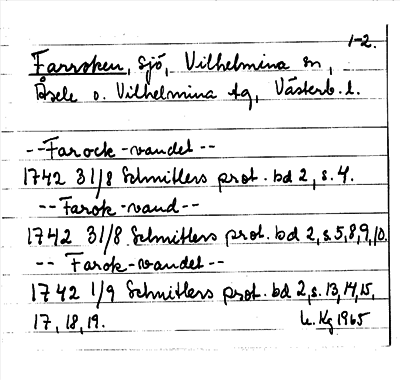 1-2.
Farroken, sjö, Vilhelmina sn,
Åsele o. Vilhelmina tg, Västerb. l.
--Farock-vandet--
1742 31/8 Schnitlers prot. bd 2, s. 4.
--Farok-vand--
1742 31/8 Schnitlers prot. bd 2, s. 5,8,9,10.
-- Farok-vandet--
1742 1/9 Schnitlers prot. bd 2, s. 13, 14, 15,
17, 18, 19. K. Kg 1965